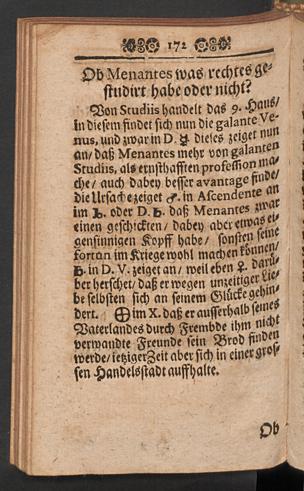 172
Ob Menantes was rechtes ge-
studirt habe oder nicht?
Von Studiis handelt das 9. Haus/
in diesem findet sich nun die galante Ve-
nus, und zwar in D. ☿. dieses zeiget nun
an/ daß Menantes mehr von galanten
Studiis, als ernsthafften profession ma-
che/ auch dabey besser avantage finde/
die Ursache zeiget ♂. in Ascendente an
im ♄. oder D. ♄. daß Menantes zwar
einen geschickten/ dabey aber etwas ei-
gensinnigen Kopff habe/ sonsten seine
fortun im Kriege wohl machen können/
♄. in D. V. zeiget an/ weil eben ♀. darü-
ber herschet/ daß er wegen unzeitiger Lie-
be selbsten sich an seinem Glücke gehin-
dert. ⊕ im X. daß er ausserhalb seines
Vaterlandes durch Frembde ihm nicht
verwandte Freunde sein Brod finden
werde/ ietziger Zeit aber sich in einer gros-
sen Handelsstadt auffhalte.
Ob